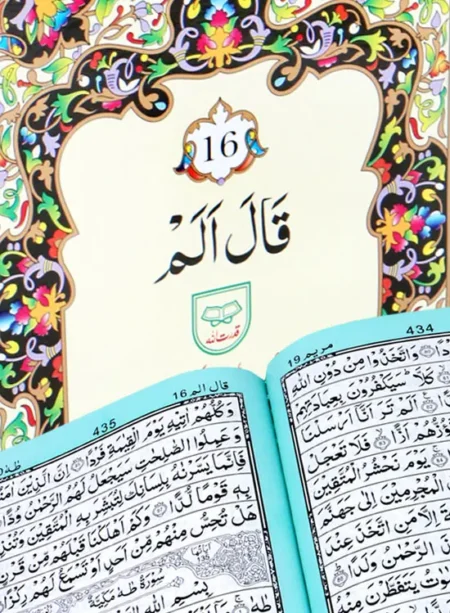 16
قَالَ اَلَمْ
قدرت الله
434
مريم 19
دًّا ۝ وَاتَّخَذُوْا مِنْ دُوْنِ اللّٰهِ
كَلَّا ؕ سَيَكْفُرُوْنَ بِعِبَادَتِهِمْ
اَلَمْ تَرَ اَنَّاۤ اَرْسَلْنَا
تَؤُزُّهُمْ اَزًّا ۝ فَلَا تَعْجَلْ
يَوْمَ نَحْشُرُ الْمُتَّقِيْنَ
الْمُجْرِمِيْنَ اِلٰى جَهَنَّمَ
اِلَّا مَنِ اتَّخَذَ عِنْدَ
الرَّحْمٰنُ وَلَدًا ۝
يَتَفَطَّرْنَ مِنْهُ
قال الم 16
435
طه
وَكُلُّهُمْ اٰتِيْهِ يَوْمَ الْقِيٰمَةِ فَرْدًا ۝ اِنَّ الَّذِيْنَ اٰمَنُوْا
وَعَمِلُوا الصّٰلِحٰتِ سَيَجْعَلُ لَهُمُ الرَّحْمٰنُ وُدًّا ۝
فَاِنَّمَا يَسَّرْنٰهُ بِلِسَانِكَ لِتُبَشِّرَ بِهِ الْمُتَّقِيْنَ وَتُنْذِرَ
بِهٖ قَوْمًا لُّدًّا ۝ وَكَمْ اَهْلَكْنَا قَبْلَهُمْ مِّنْ قَرْنٍ
هَلْ تُحِسُّ مِنْهُمْ مِّنْ اَحَدٍ اَوْ تَسْمَعُ لَهُمْ رِكْزًا
سُوْرَةُ طٰهٰ مَكِّيَّةٌ
بِسْمِ اللّٰهِ